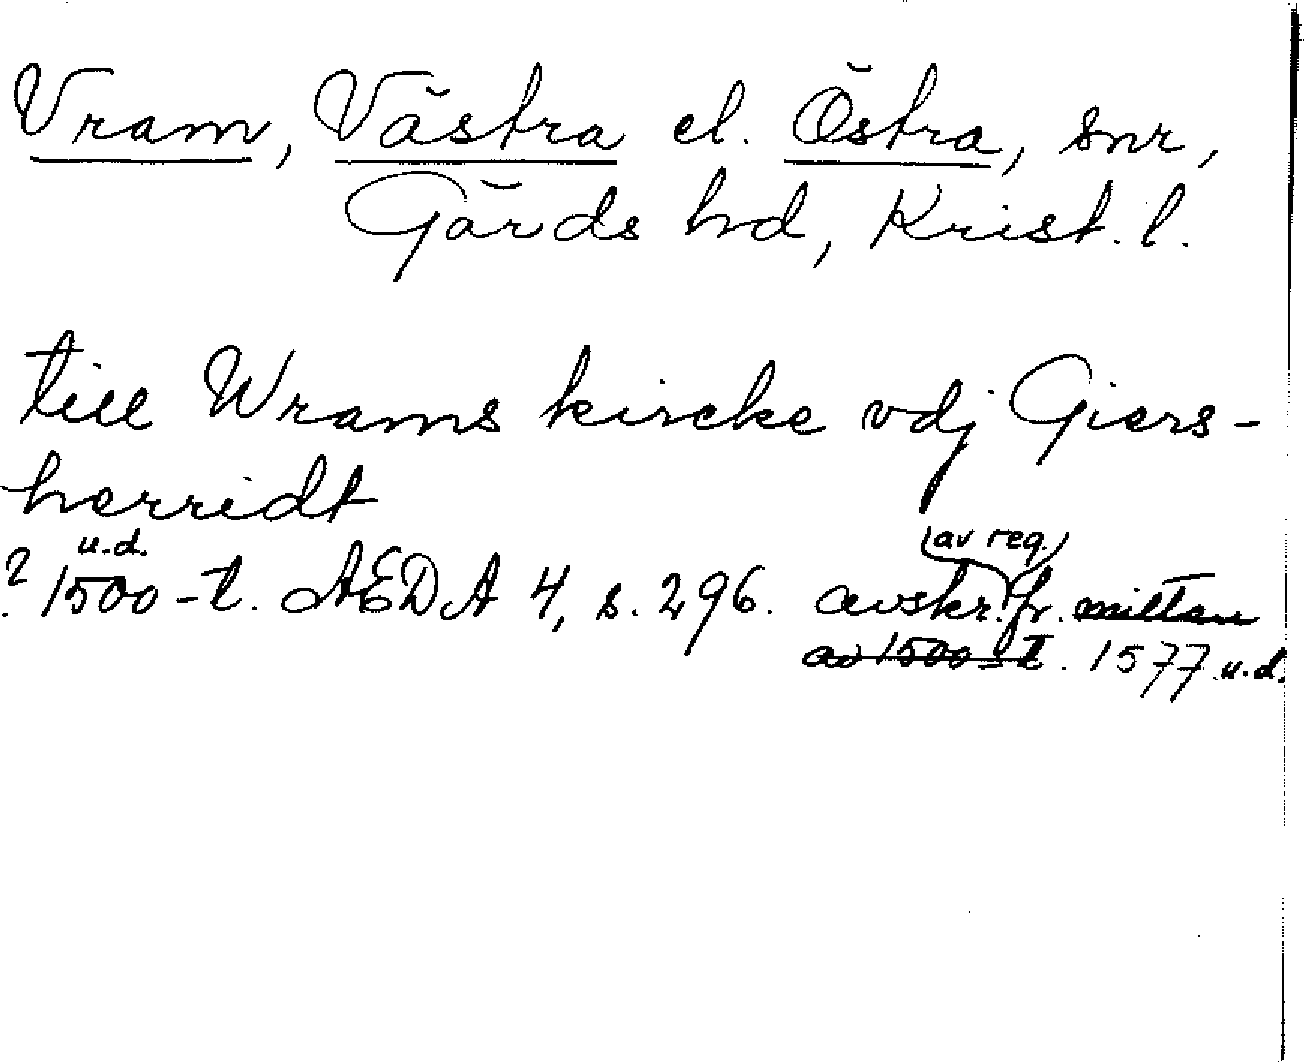 Vram, Västra el. Östra, snr,
Gärds hd, Krist. l.
till Wrams kircke vdj Giers-
herridt
u.d. (av reg.)
? 1500-t. AEDA 4, s. 296. avskr. fr. mitten
av 1500-t. 1577 u.d.